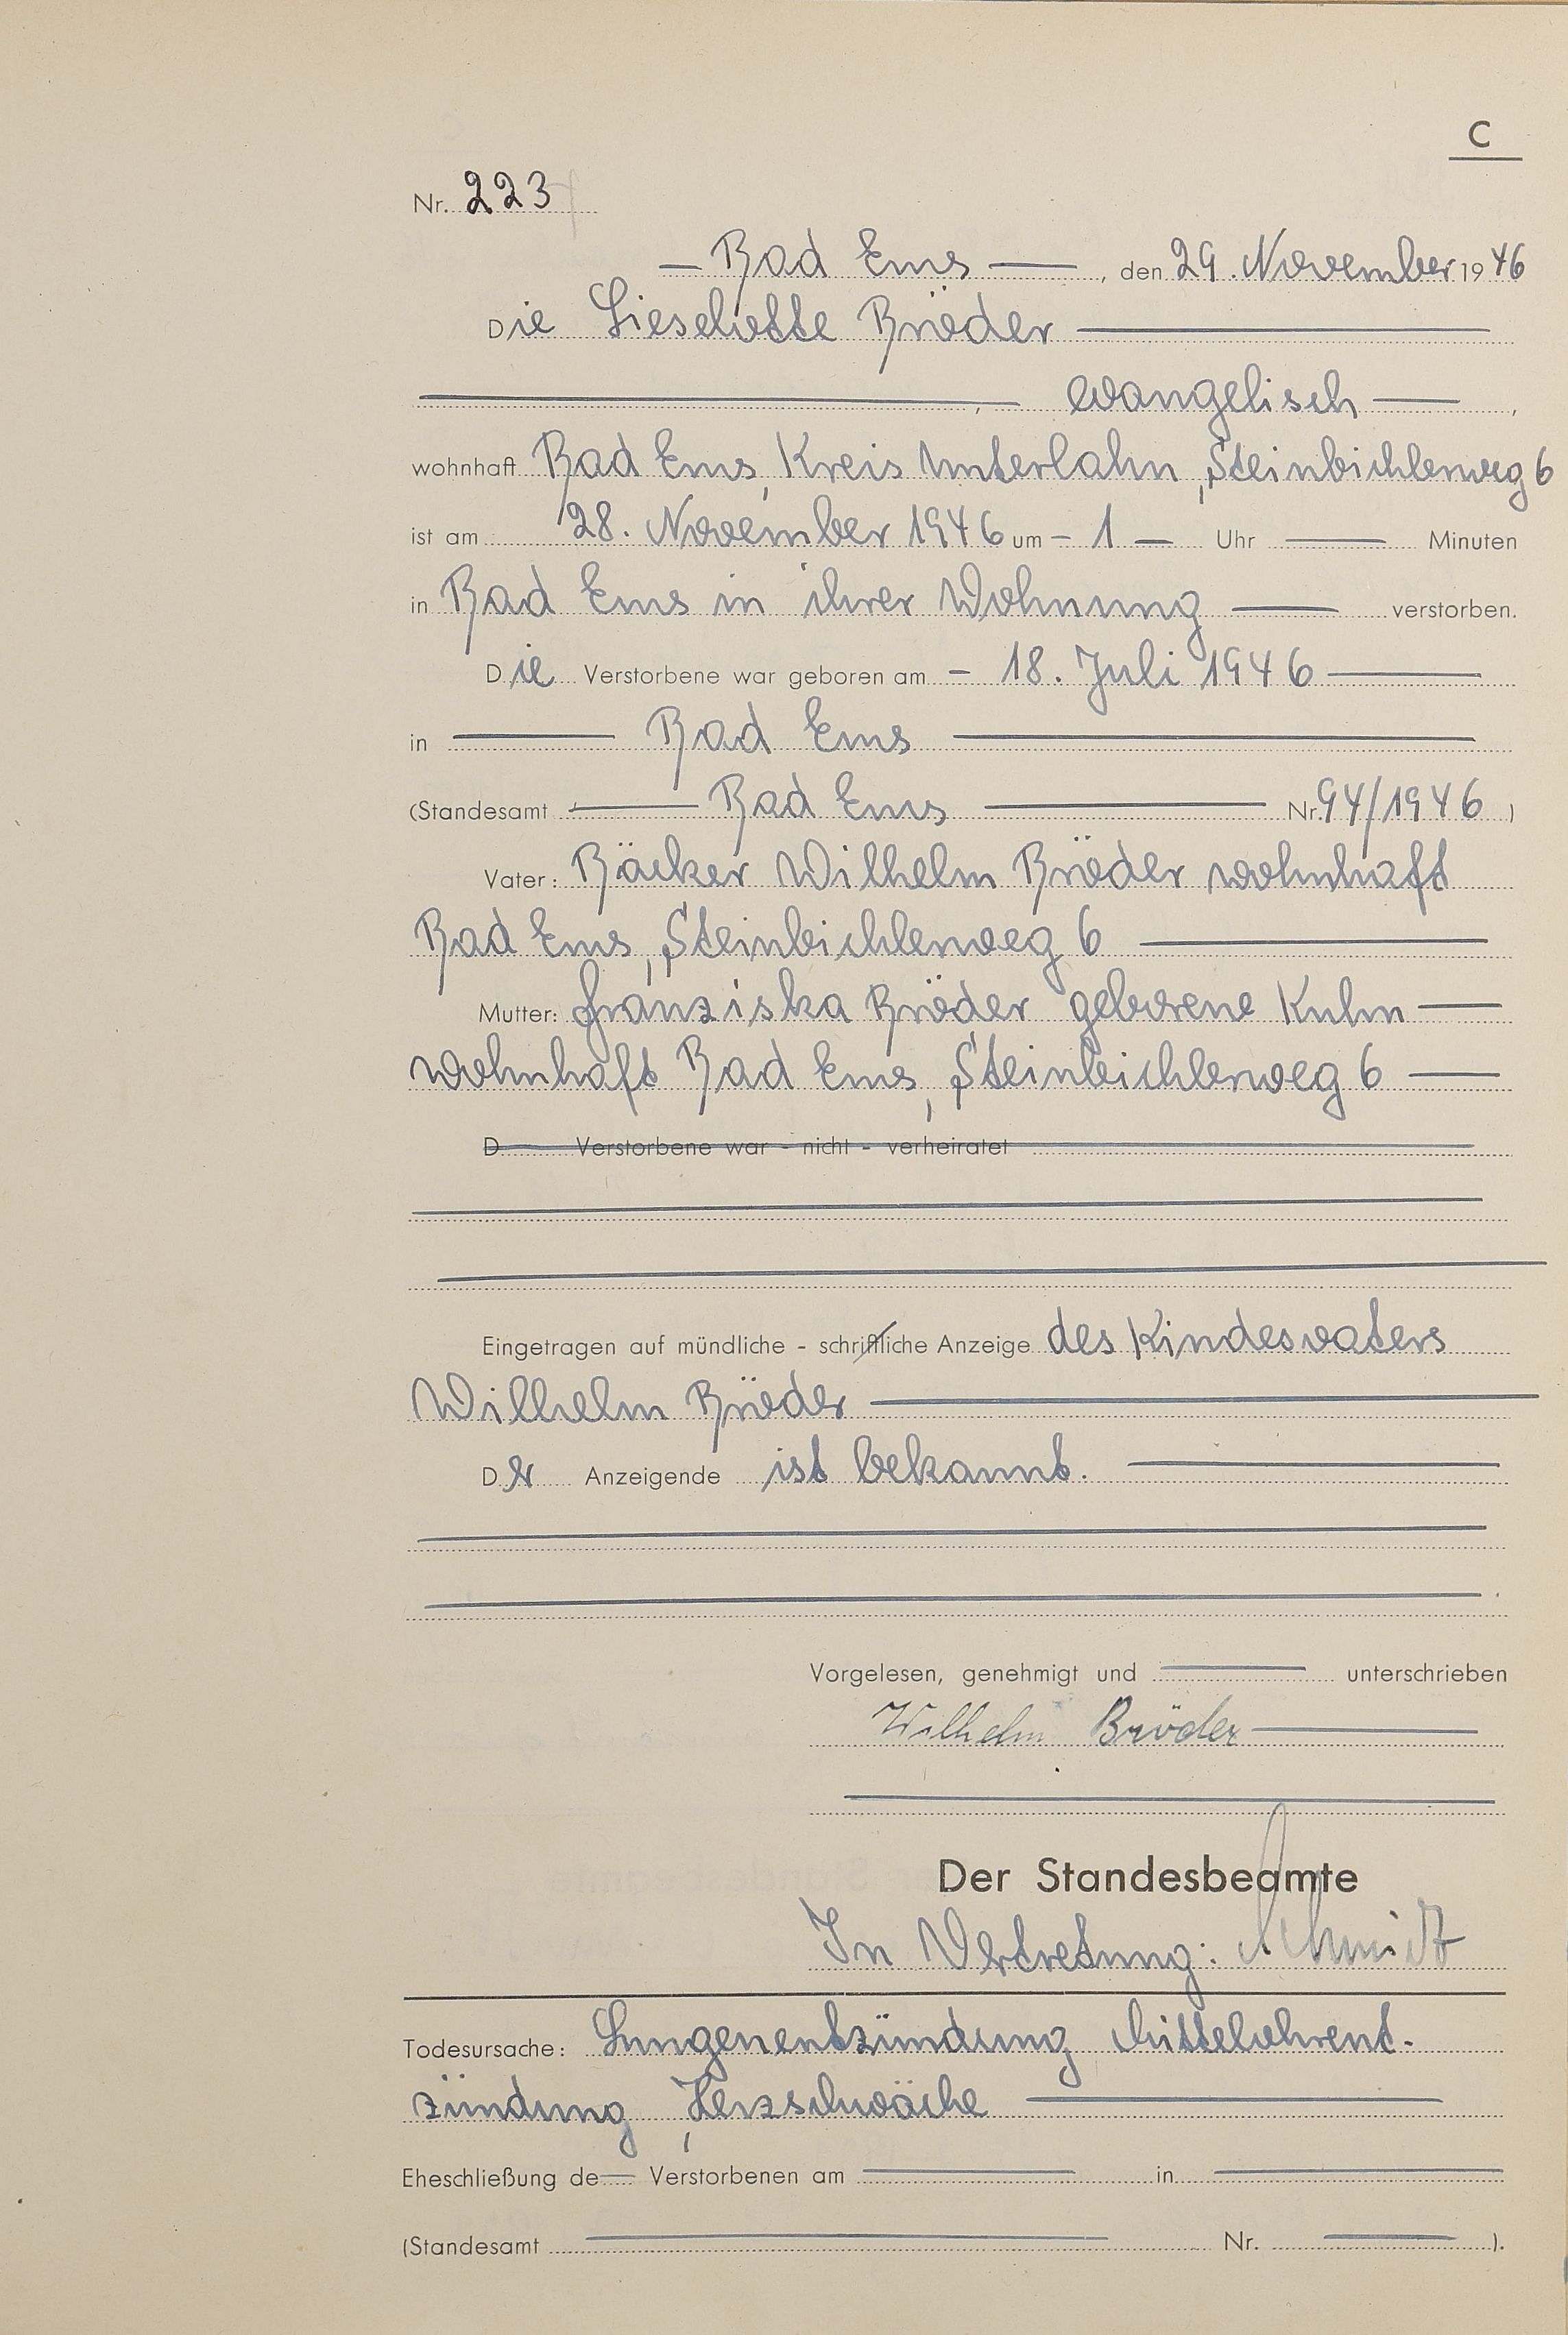 C
Nr. 223
— Bad Ems —, den 29. November 1946
Die Lieselotte Bröder —
—, evangelisch —,
wohnhaft Bad Ems, Kreis Unterlahn, Steinbichlerweg 6
ist am 28. November 1946 um — 1 — Uhr — Minuten
in Bad Ems in ihrer Wohnung — verstorben.
Die Verstorbene war geboren am — 18. Juli 1946 —
in — Bad Ems —
(Standesamt — Bad Ems — Nr. 94/1946)
Vater: Bäcker Wilhelm Bröder wohnhaft
Bad Ems, Steinbichlerweg 6 —
Mutter: Franziska Bröder geborene Kuhn —
wohnhaft Bad Ems, Steinbichlerweg 6 —
D Verstorbene war - nicht - verheiratet
Eingetragen auf mündliche - schriftliche Anzeige des Kindesvaters
Wilhelm Bröder —
Der Anzeigende ist bekannt. —
Vorgelesen, genehmigt und — unterschrieben
Wilhelm Bröder —
Der Standesbeamte
In Vertretung: Schmidt
Todesursache: Lungenentzündung Mittelohrent-
zündung, Herzschwäche —
Eheschließung de— Verstorbenen am — in —
(Standesamt — Nr. —).